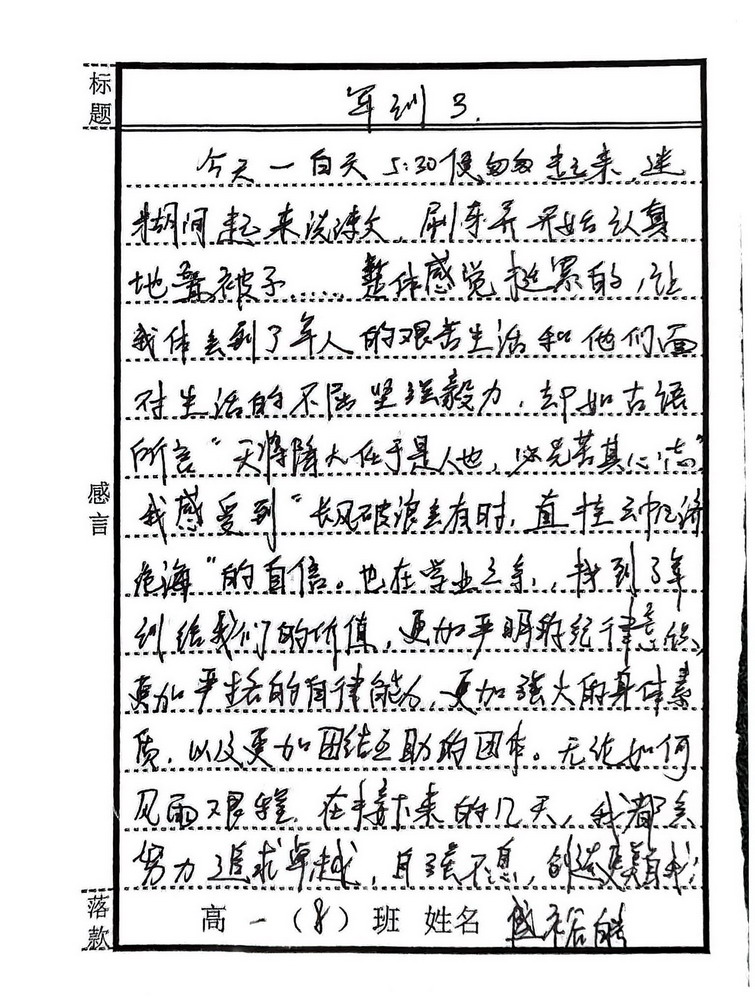 标题
军训 3.
今天一白天 5:30便匆匆起来,迷
糊间起来洗漱,刷牙并开始认真
地叠被子……整体感觉挺累的,让
我体会到了军人的艰苦生活和他们面
对生活的不屈坚强毅力,却如古语
所言“天将降大任于是人也,必先苦其心志”
感言
我感受到“长风破浪会有时,直挂云帆济
沧海”的自信。也在学业之余,找到了军
训给我们的价值,更加严明的纪律意识
更加严格的自律能力,更加强大的身体素
质,以及更加团结互助的团体。无论如何
风雨艰程,在接下来的几天,我都会
努力追求卓越,自强不息,创造更美自我!
落款
高一(8)班 姓名